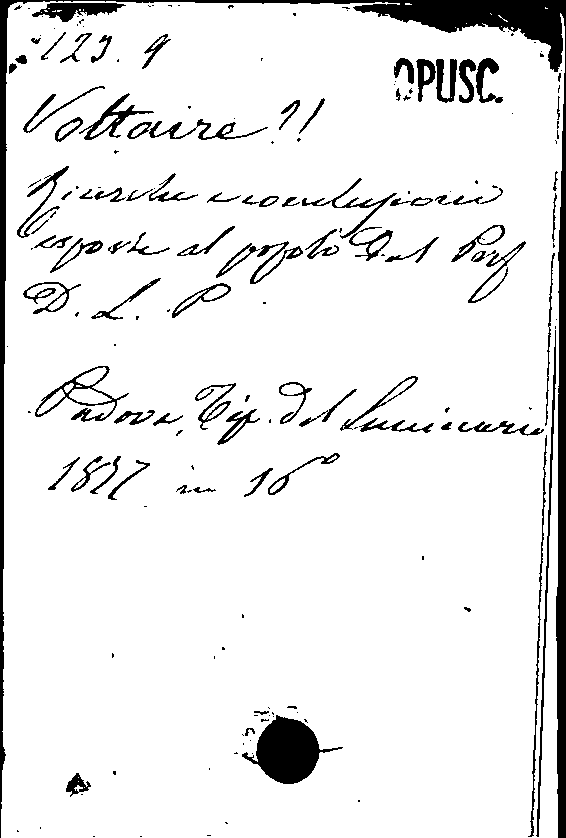 123. 9
OPUSC.
Voltaire?!
Ricerche e conclusioni
esposte al popolo dal Prof
D. L. P.
Padova, Tip. del Seminario
1877 in 16°